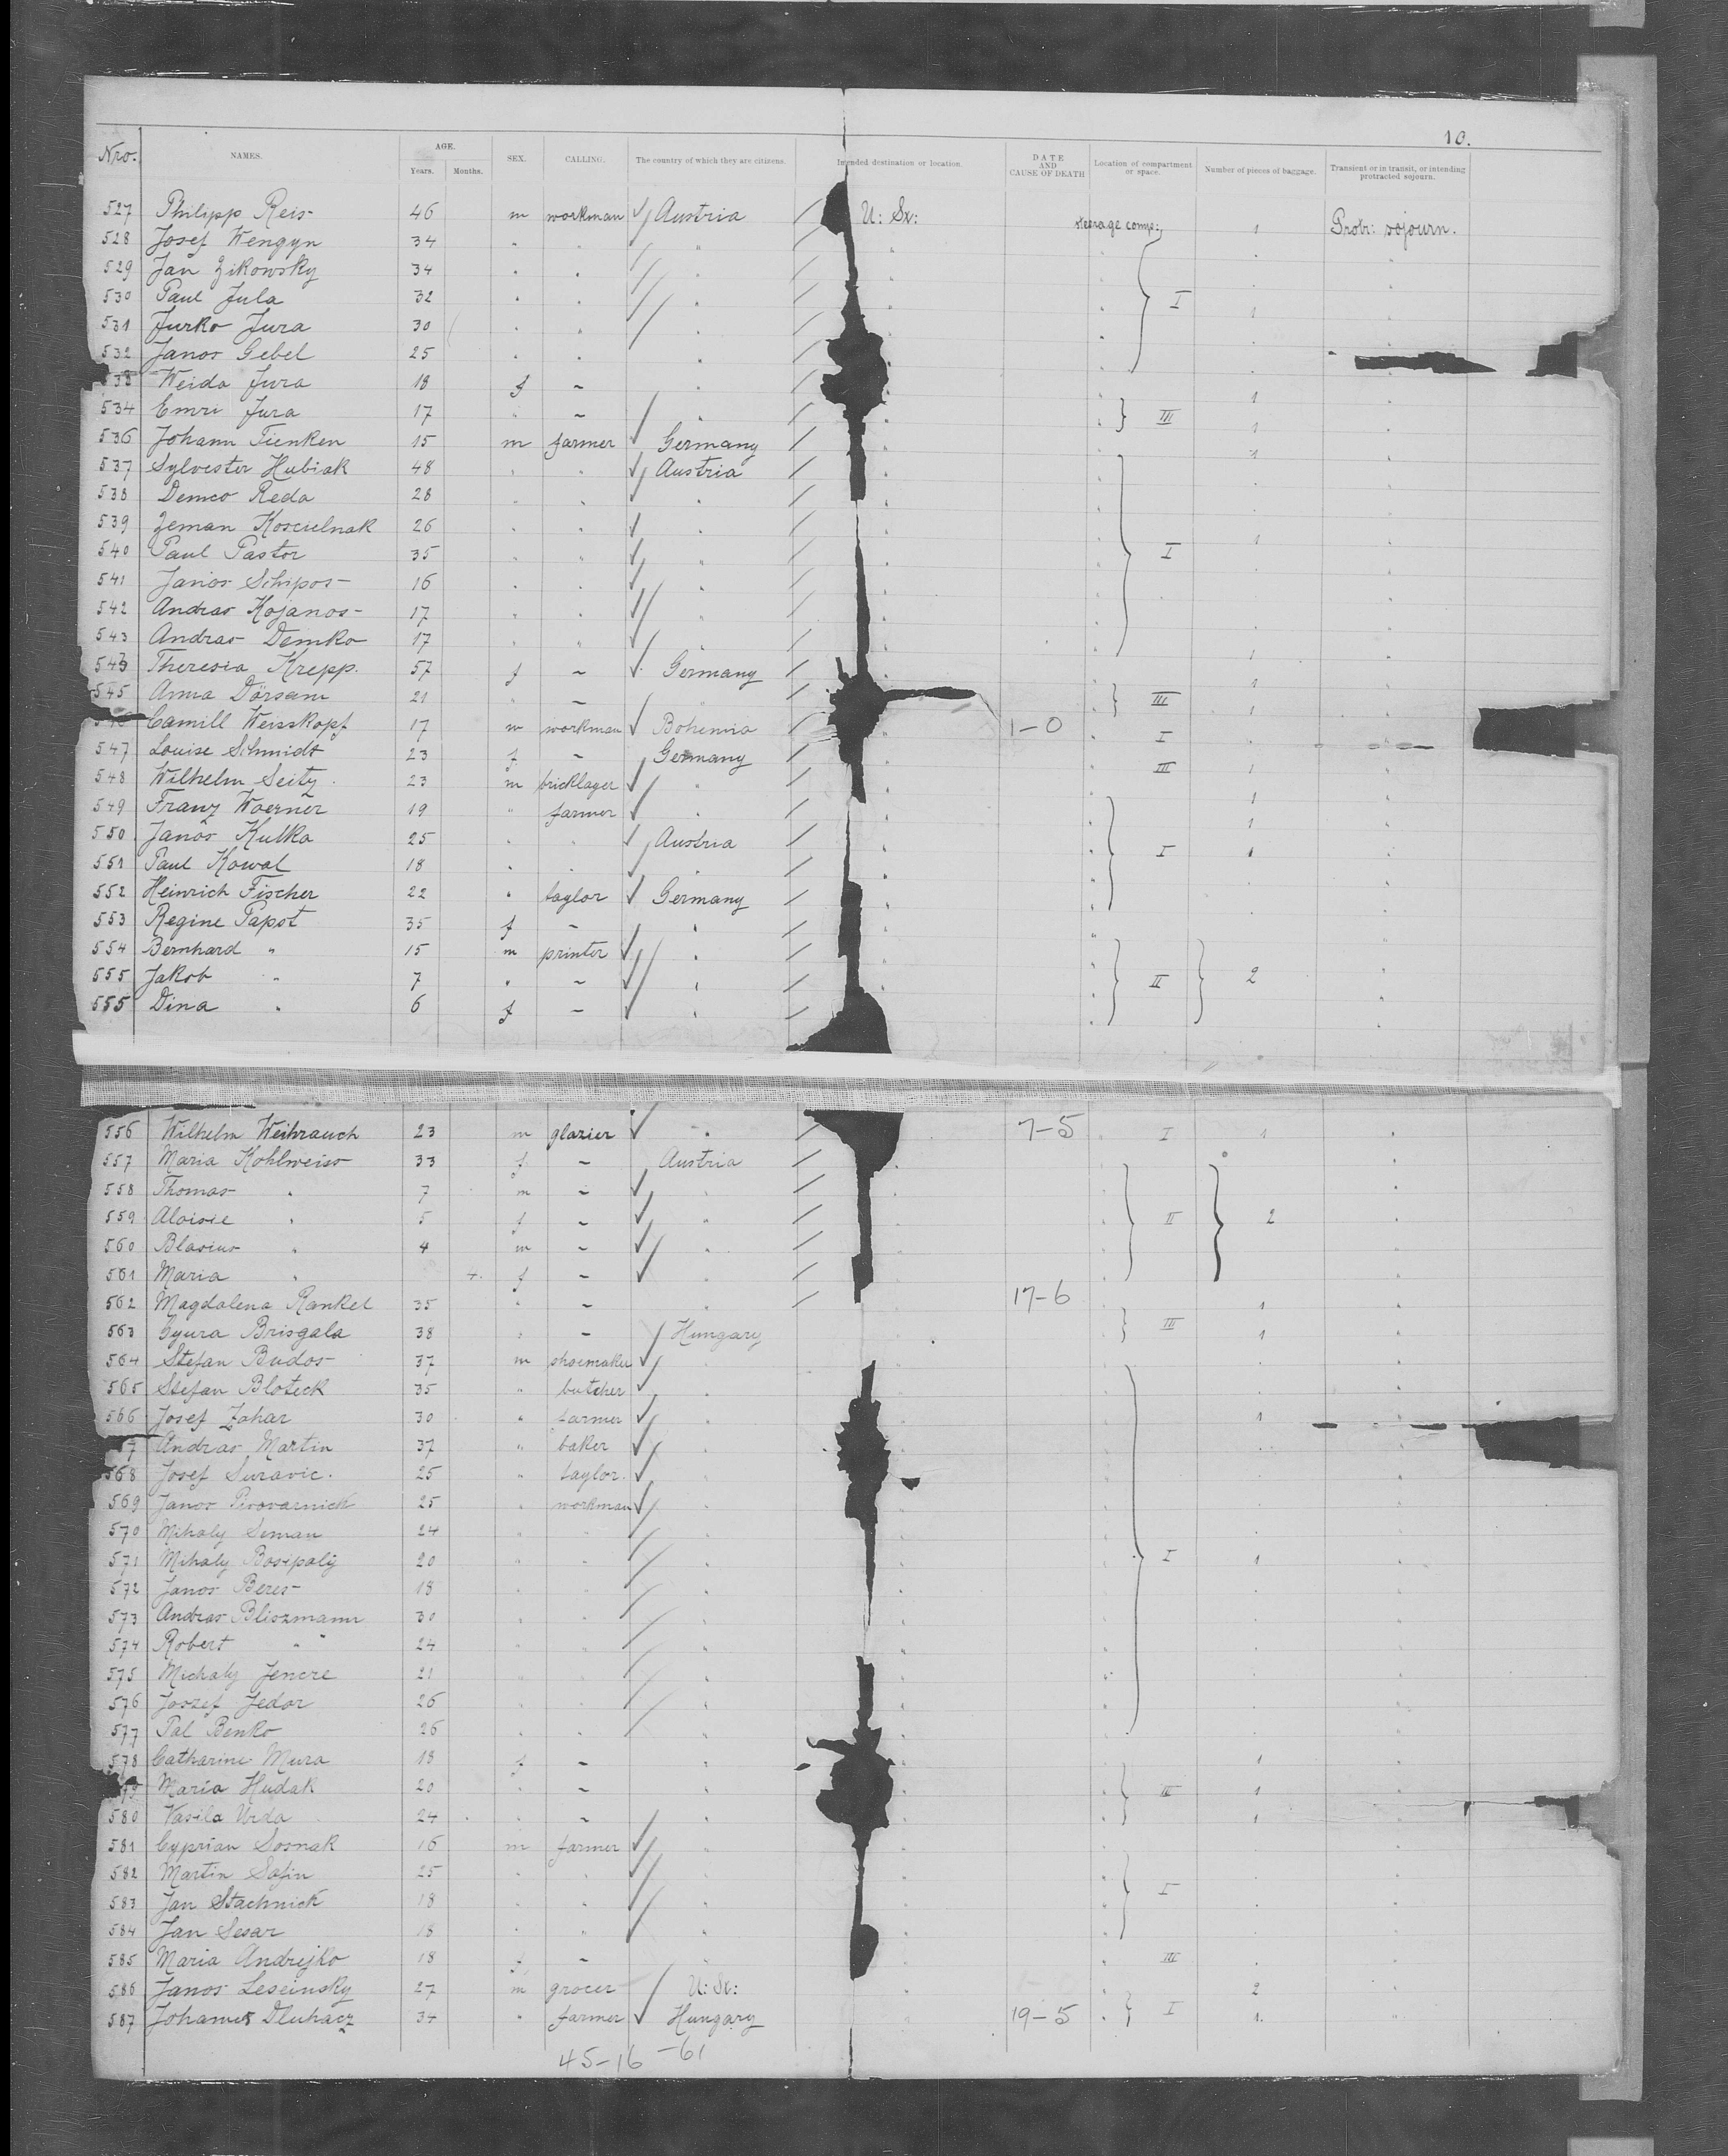 10.
Nro. NAMES. AGE. Years. Months. SEX. CALLING. The country of which they are citizens. Intended destination or location. DATE AND CAUSE OF DEATH Location of compartment or space. Number of pieces of baggage. Transient or in transit, or intending protracted sojourn.
527 Philipp Reis 46 m workman Austria U: St: steerage comp: 1 Protr: sojourn.
528 Josef Wengyn 34 " " "
529 Jan Zikowsky 34 " " "
530 Paul Jula 32 " " " I 1
531 Jurko Jura 30 " " "
532 Janos Gebel 25 " " "
533 Weida Jura 18 f – " 1
534 Emri Jura 17 " – " III 1
536 Johann Tienken 15 m farmer Germany 1
537 Sylvester Hubiak 48 " " Austria
538 Demco Reda 28 " " "
539 Zeman Koscielnak 26 " " " 1
540 Paul Pastor 35 " " " I
541 Janos Schipos 16 " " "
542 Andras Kojanos 17 " " "
543 Andras Demko 17 " " " 1
543 Theresia Krepp. 57 f – Germany 1
545 Anna Dörsam 21 " – " III 1
Camill Weisskopf 17 m workman Bohemia 1-0 I
547 Louise Schmidt 23 f – Germany III 1
548 Wilhelm Seitz 23 m bricklager " 1
549 Franz Woerner 19 " farmer " 1
550 Janos Kulka 25 " " Austria I 1
551 Paul Kowal 18 " " "
552 Heinrich Fischer 22 " taylor Germany
553 Regine Papst 35 f – "
554 Bernhard " 15 m printer "
555 Jakob " 7 " – " II 2
555 Dina " 6 f – "
556 Wilhelm Weihrauch 23 m glazier " 7-5 I 1
557 Maria Kohlweiss 33 f – Austria
558 Thomas " 7 m – "
559 Aloisie " 5 f – " II 2
560 Blasius " 4 m – "
561 Maria " 4. f – "
562 Magdalena Rankel 35 " – " 17-6 1
563 Gyura Brisgala 38 " – Hungary III 1
564 Stefan Budos 37 m shoemaker "
565 Stefan Bloteck 35 " butcher "
566 Josef Zahar 30 " farmer " 1
7 Andras Martin 37 " baker "
568 Josef Suravic. 25 " taylor. "
569 Janos Pivovarnick 25 " workman "
570 Mihaly Seman 24 " " "
571 Mihaly Bosipaly 20 " " " I 1
572 Janos Beres 18 " " "
573 Andras Bliszmann 30 " " "
574 Robert " 24 " " "
575 Michaly Jencre 21 " " "
576 Joszef Fedor 26 " " "
577 Pal Benko 26 " " "
578 Catharine Mura 18 f – " 1
Maria Hudak 20 " – " III 1
580 Vasila Urda 24 " – " 1
581 Cyprian Sosnak 16 m farmer "
582 Martin Safin 25 " " "
583 Jan Stachnick 18 " " " I
584 Jan Sesar 18 " " "
585 Maria Andrejko 18 f – " III
586 Janos Lescinsky 27 m grocer U: St: 2
587 Johannes Dluhacz 34 " farmer Hungary 19-5 I 1.
45-16-61